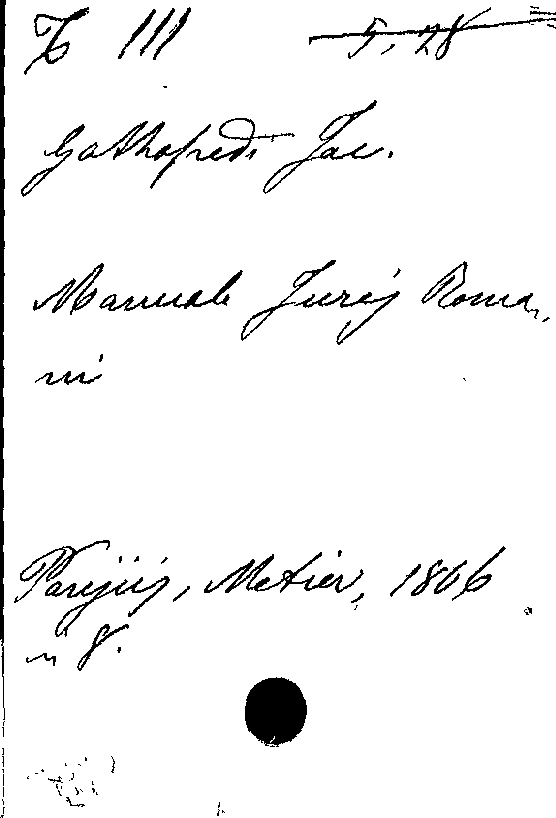 III 5, 28
Gothofredi Jac.
Manuale Juris Roma,
ni
Parisiis, Metier, 1806
in 8.